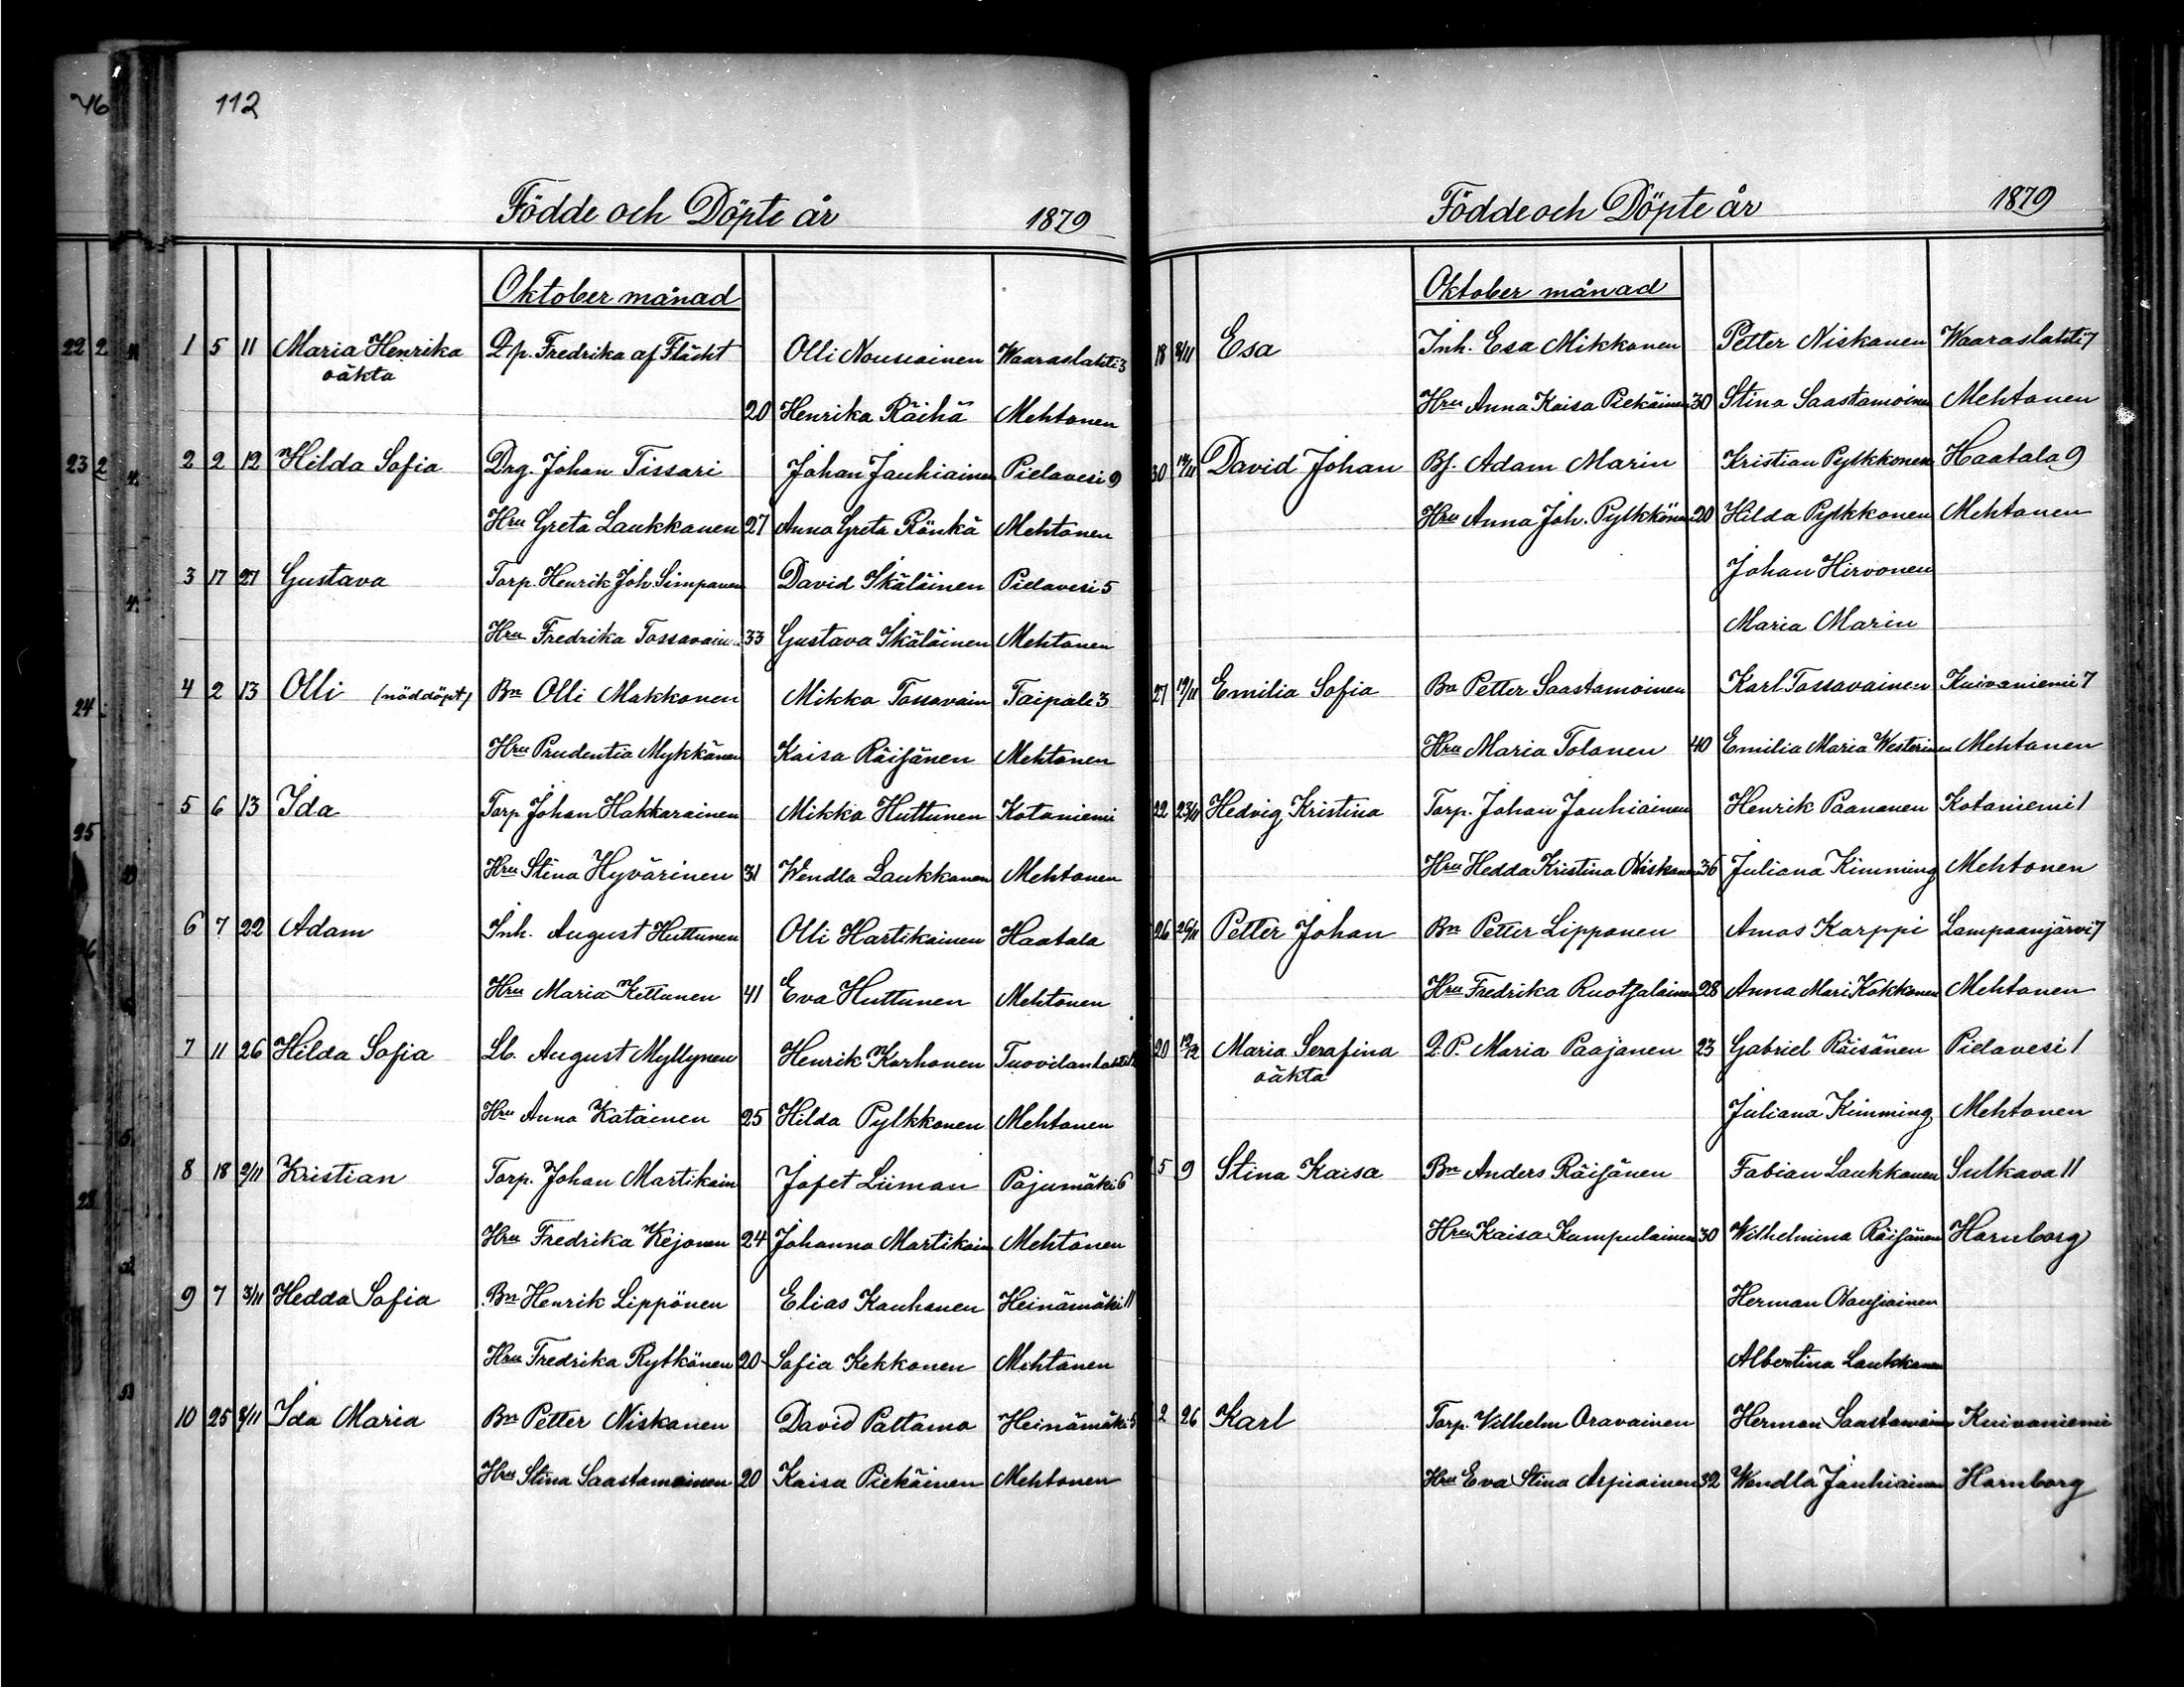 112
Födde och Döpte år 1879
Oktober månad
1 5 11 Maria Henrika Q.p. Fredrika af Flächt Olli Nousiainen Waaraslahti 3
oäkta
20 Henrika Räihä Mehtonen
2 2 12 Hilda Sofia Drg. Johan Tissari Johan Jauhiainen Pielavesi 9
Hru Greta Laukkanen 27 Anna Greta Rönkä Mehtonen
3 17 27 Gustava Torp. Henrik Joh. Simpanen David Ikäläinen Pielavesi 5
Hru Fredrika Tossavain 33 Gustava Ikäläinen Mehtonen
4 2 13 Olli (nöddöpt) Bn Olli Makkonen Mikko Tossavain Taipale 3
Hru Prudentia Mykkänen Kaisa Räisänen Mehtonen
5 6 13 Ida Torp. Johan Hakkarainen Mikko Huttunen Kotaniemi
Hru Stina Hyvärinen 31 Wendla Laukkanen Mehtonen
6 7 22 Adam Inh. August Huttunen Olli Hartikainen Haatala
Hru Maria Kettunen 41 Eva Huttunen Mehtonen
7 11 26 Hilda Sofia Lb. August Myllynen Henrik Korhonen
Hru Anna Katainen 25 Hilda Pylkkonen Mehtonen
8 18 2/11 Kristian Torp. Johan Martikain Jafet Liiman Pajumäki 6
Hru Fredrika Kejonen 24 Johanna Martikain Mehtonen
9 7 3/11 Hedda Sofia Bn Henrik Lippönen Elias Kauhanen Heinämäki 11
Hru Fredrika Rytkönen 20 Sofia Kekkonen Mehtonen
10 25 8/11 Ida Maria Bn Petter Niskanen David Pattamo Heinämäki 5
Hru Stina Saastamoinen 20 Kaisa Piekäinen Mehtonen
Födde och Döpte år 1879
Oktober månad
18 8/11 Esa Inh. Esa Mikkonen Petter Niskanen Waaraslahti 7
Hru Anna Kaisa Piekäinen 30 Stina Saastamoinen Mehtonen
30 David Johan Bf. Adam Marin Kristian Pylkkonen Haatala 9
Hru Anna Joh. Pylkkönen 20 Hilda Pylkkonen Mehtonen
Johan Hirvonen
Maria Marin
27 Emilia Sofia Bn Petter Saastamoinen Karl Tossavainen Kuivaniemi 7
Hru Maria Tolonen 40 Emilia Maria Westerinen Mehtonen
22 23/11 Hedvig Kristina Torp. Johan Jauhiainen Henrik Paananen Kotaniemi 1
Hru Hedda Kristina Niskanen 36 Juliana Kimming Mehtonen
26 26/11 Petter Johan Bn Petter Lipponen Amos Karppi Lampaanjärvi 7
Hru Fredrika Ruotsalainen 28 Anna Mari Kokkonen Mehtonen
20 Maria Serafina Q.P. Maria Paajanen 23 Gabriel Räisänen Pielavesi 1
oäkta
Juliana Kimming Mehtonen
5 9 Stina Kaisa Bn Anders Räisänen Fabian Laukkanen Sulkava 11
Hru Kaisa Kumpulainen 30 Wilhelmina Räisänen Hornborg
Herman
Albertina Laukkanen
2 26 Karl Torp. Vilhelm Oravainen Herman Saastamoinen Kuivaniemi
Hru Eva Stina Arpiainen 32 Wendla Jauhiainen Hornborg